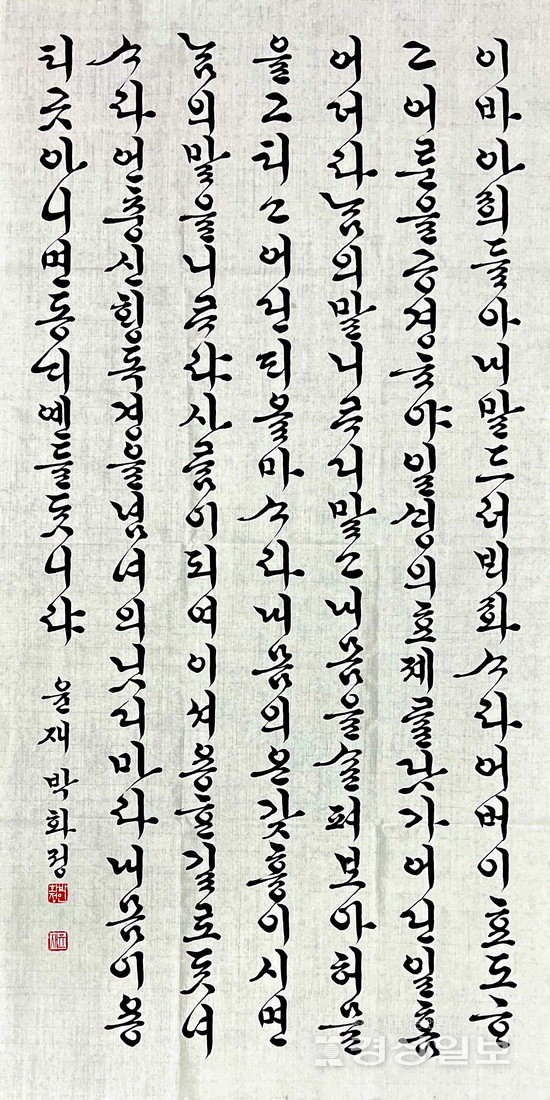 이바아희들아내말드러ᄇᆡ화ᄉᆞ라어버이효도ᄒᆞ
고어룬을공경ᄒᆞ야일ᄉᆡᆼ의효제를닷가어딘일홈
어더라ᄂᆞᆷ의말니ᄅᆞ디말고내몸을ᄉᆞᆯ펴보아허믈
을고티고어딘ᄃᆡ올마ᄉᆞ라내몸의온갖흉이시면
ᄂᆞᆷ의말을니ᄅᆞ랴사ᄅᆞᆷ이되여이셔용ᄒᆞᆫ길로ᄃᆞᆺ녀
ᄉᆞ라언튱신ᄒᆡᆼ독경을념녀의닛디마라내몸이용
티곳아니면동ᄂᆡ옌들ᄃᆞᆺ니랴 윤재 박화정
경상일보